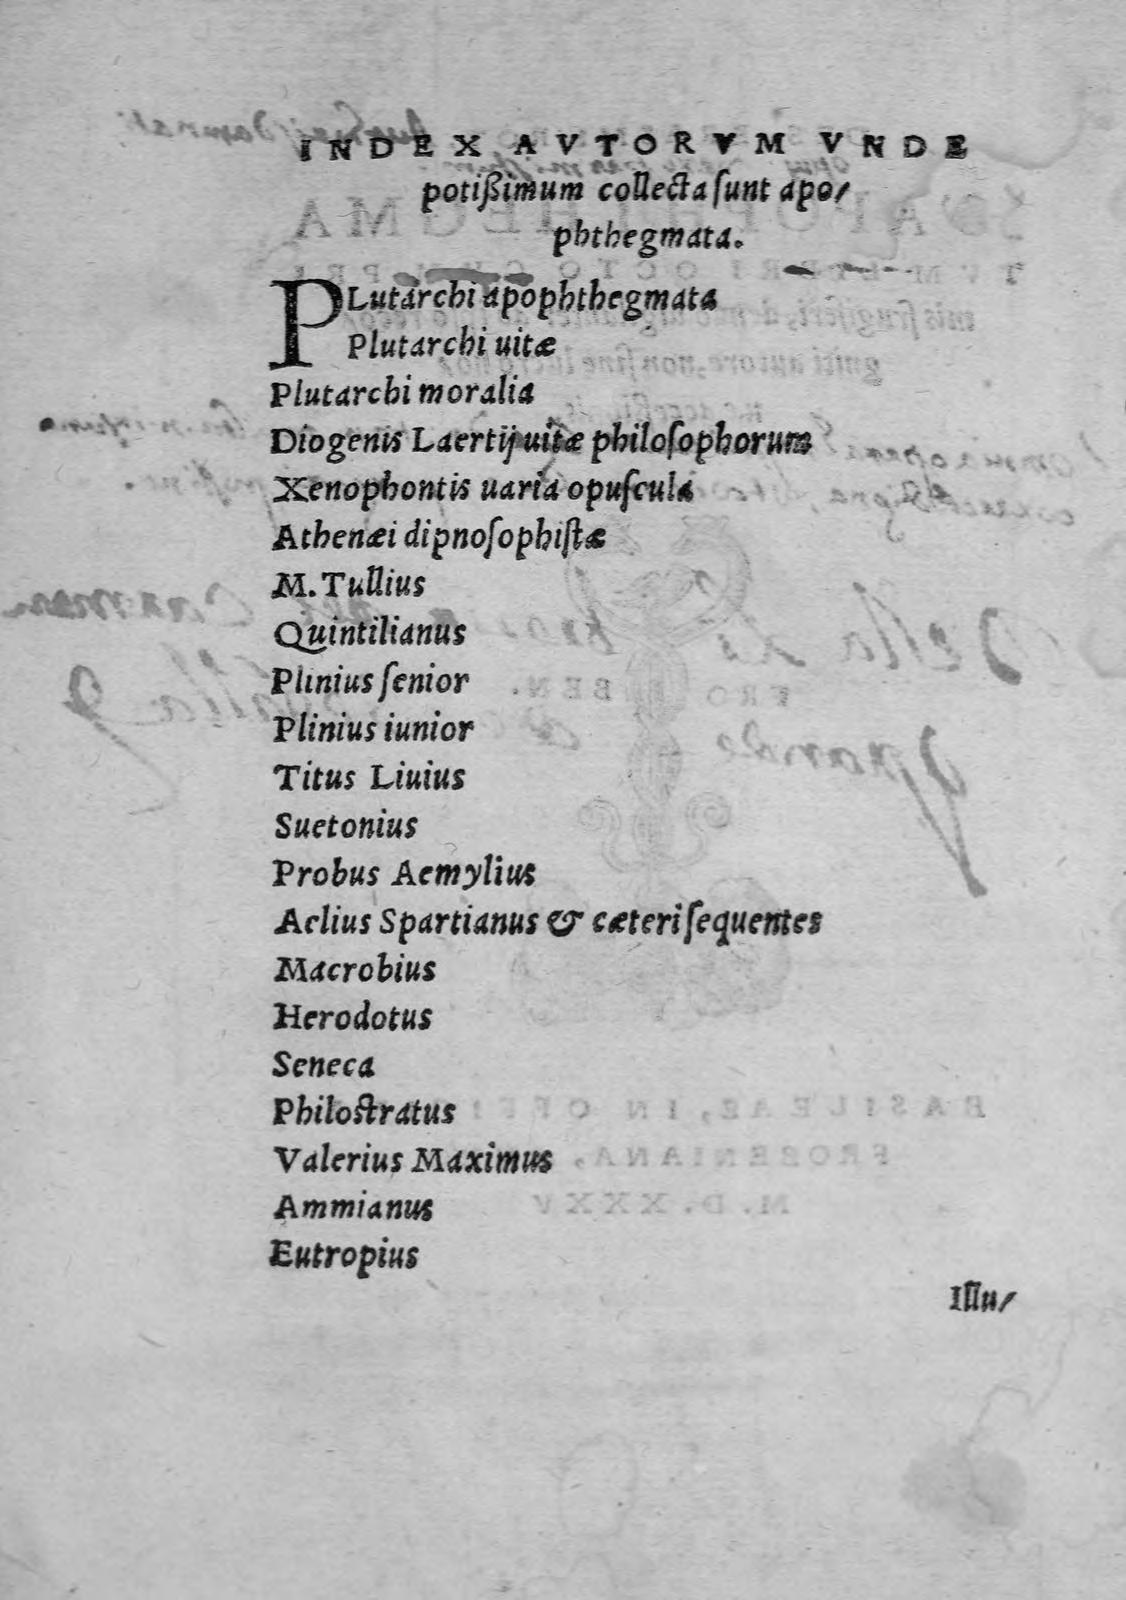 INDEX AVTORVM VNDE
potißimum collecta ſunt apo/
phthegmata.
PLutarchi apophthegmata
Plutarchi uitæ
Plutarchi moralia
Diogenis Laertij uitæ philoſophorum
Xenophontis uaria opuſcula
Athenæi dipnoſophiſtæ
M. Tullius
Quintilianus
Plinius ſenior
Plinius iunior
Titus Liuius
Suetonius
Probus Aemylius
Aelius Spartianus & cæteri ſequentes
Macrobius
Herodotus
Seneca
Philoſtratus
Valerius Maximus
Ammianus
Eutropius
Illu/